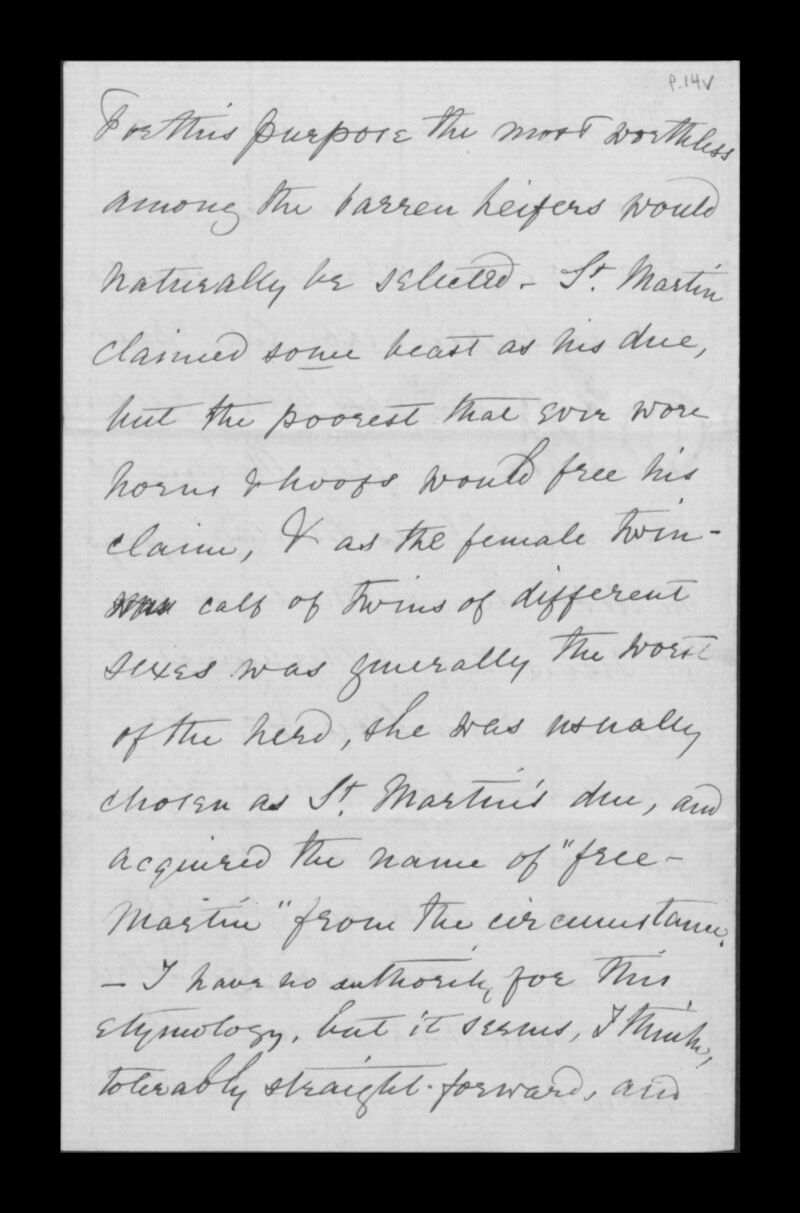 P.14V
For this purpose the most worthless
among the barren heifers would
naturally be selected – St. Martin
claimed some beast as his due,
but the poorest that ever wore
horns & hoofs would free his
claim, & as the female twin-
calf of twins of different
sexes was generally the worst
of the herd, she was usually
chosen as St. Martin's due, and
acquired the name of "free-
Martin" from the circumstance.
– I have no authority for this
etymology, but it seems, I think,
tolerably straight-forward, and